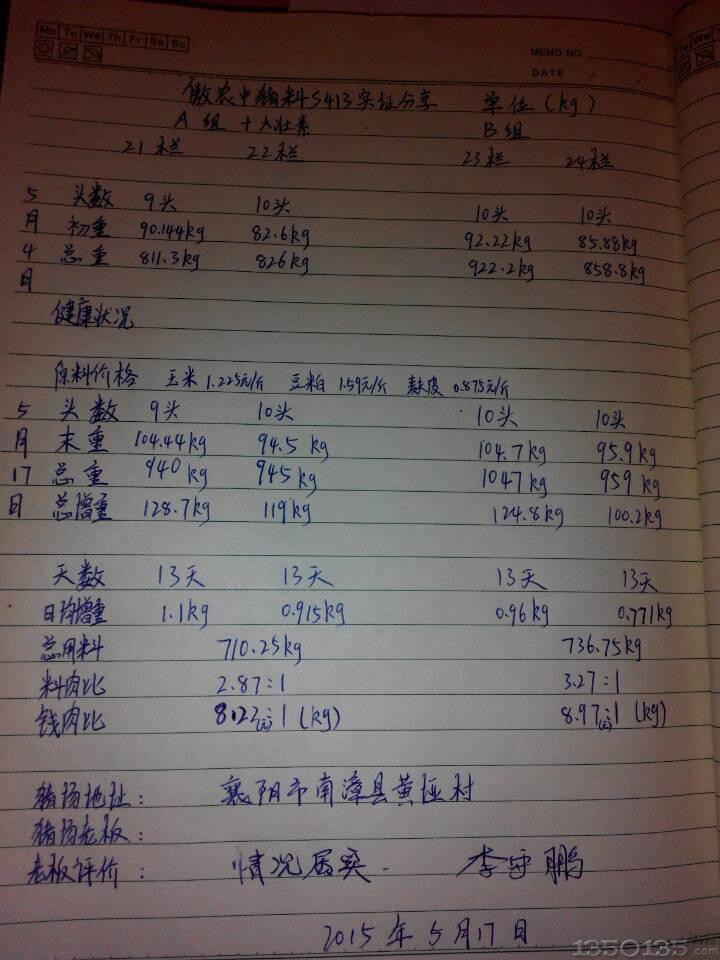 Mo Tu We Th Fr Sa Su
MEMO NO.
DATE / /
Tu We
傲农中猪料S413实证分享 单位(kg)
A 组 + 大壮素 B组
21栏 22栏 23栏 24栏
5 头数 9头 10头 10头 10头
月 初重 90.144kg 82.6kg 92.22kg 85.88kg
4 总重 811.3kg 826kg 922.2kg 858.8kg
日
健康状况
原料价格 玉米 1.225元/斤 豆粕 1.59元/斤 麸皮 0.875元/斤
5 头数 9头 10头 10头 10头
月 末重 104.44kg 94.5 kg 104.7kg 95.9kg
17 总重 940kg 945kg 1047kg 959 kg
日 总增重 128.7kg 119kg 124.8kg 100.2kg
天数 13天 13天 13天 13天
日均增重 1.1kg 0.915kg 0.96kg 0.771kg
总用料 710.25kg 736.75kg
料肉比 2.87:1 3.27:1
钱肉比 8.122元:1 (kg) 8.97元:1 (kg)
猪场地址: 襄阳市南漳县黄垭村
猪场老板:
老板评价: 情况属实. 李守鹏
2015年5月17日
1350135.com